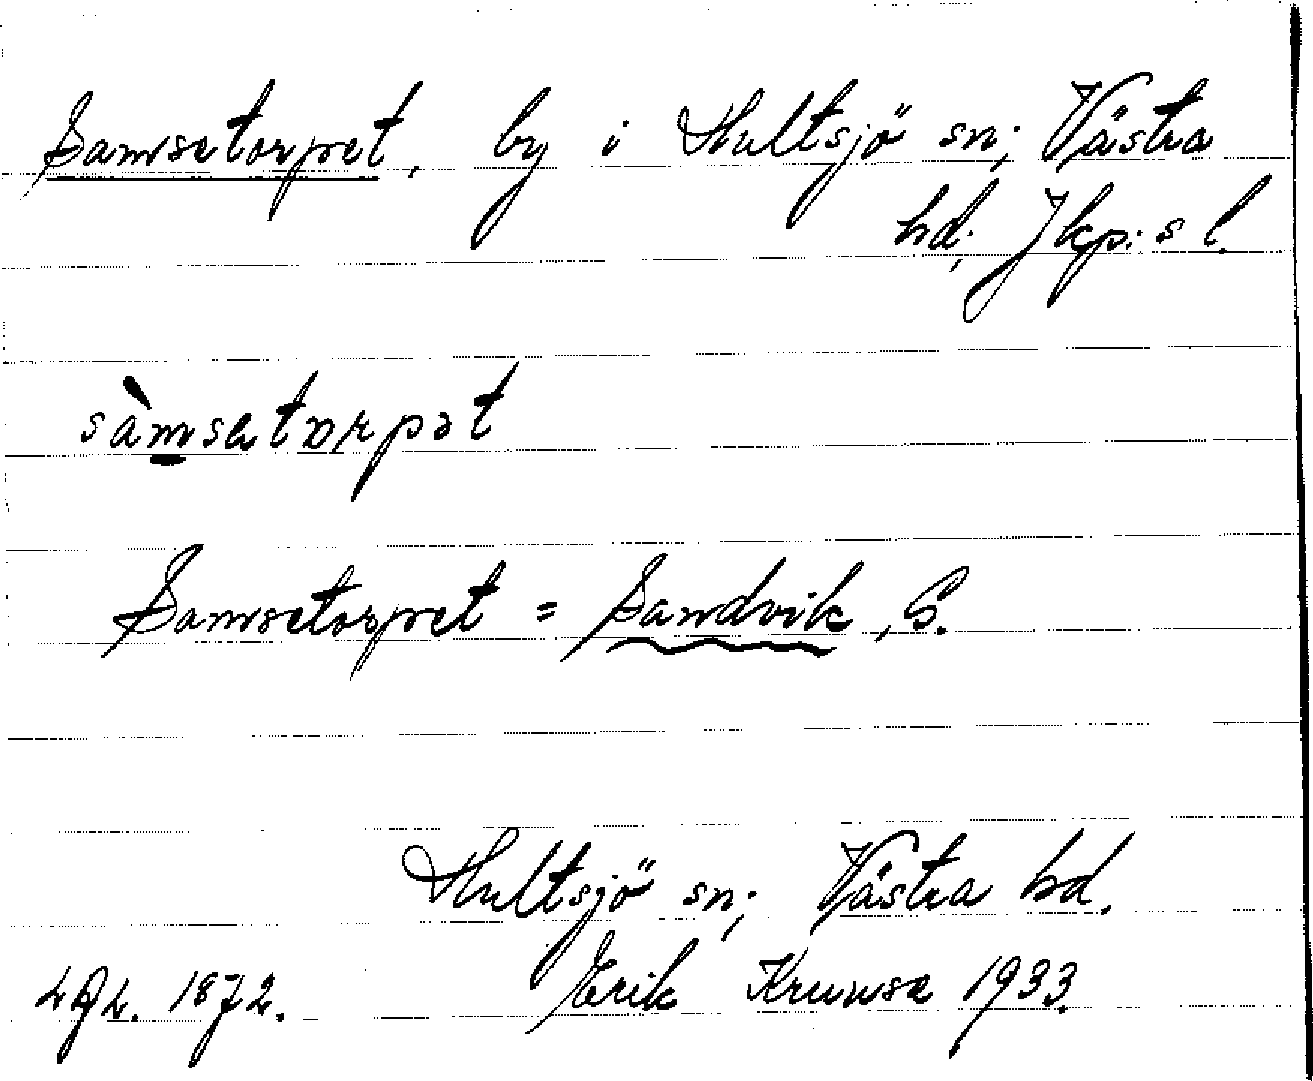 Samsetorpet, by i Hultsjö sn; Västra
hd; Jkp:s l.
sàmsatorpət
Samsetorpet = Sandvik, S.
Hultsjö sn; Västra hd.
1872. Erik Krumse 1933.